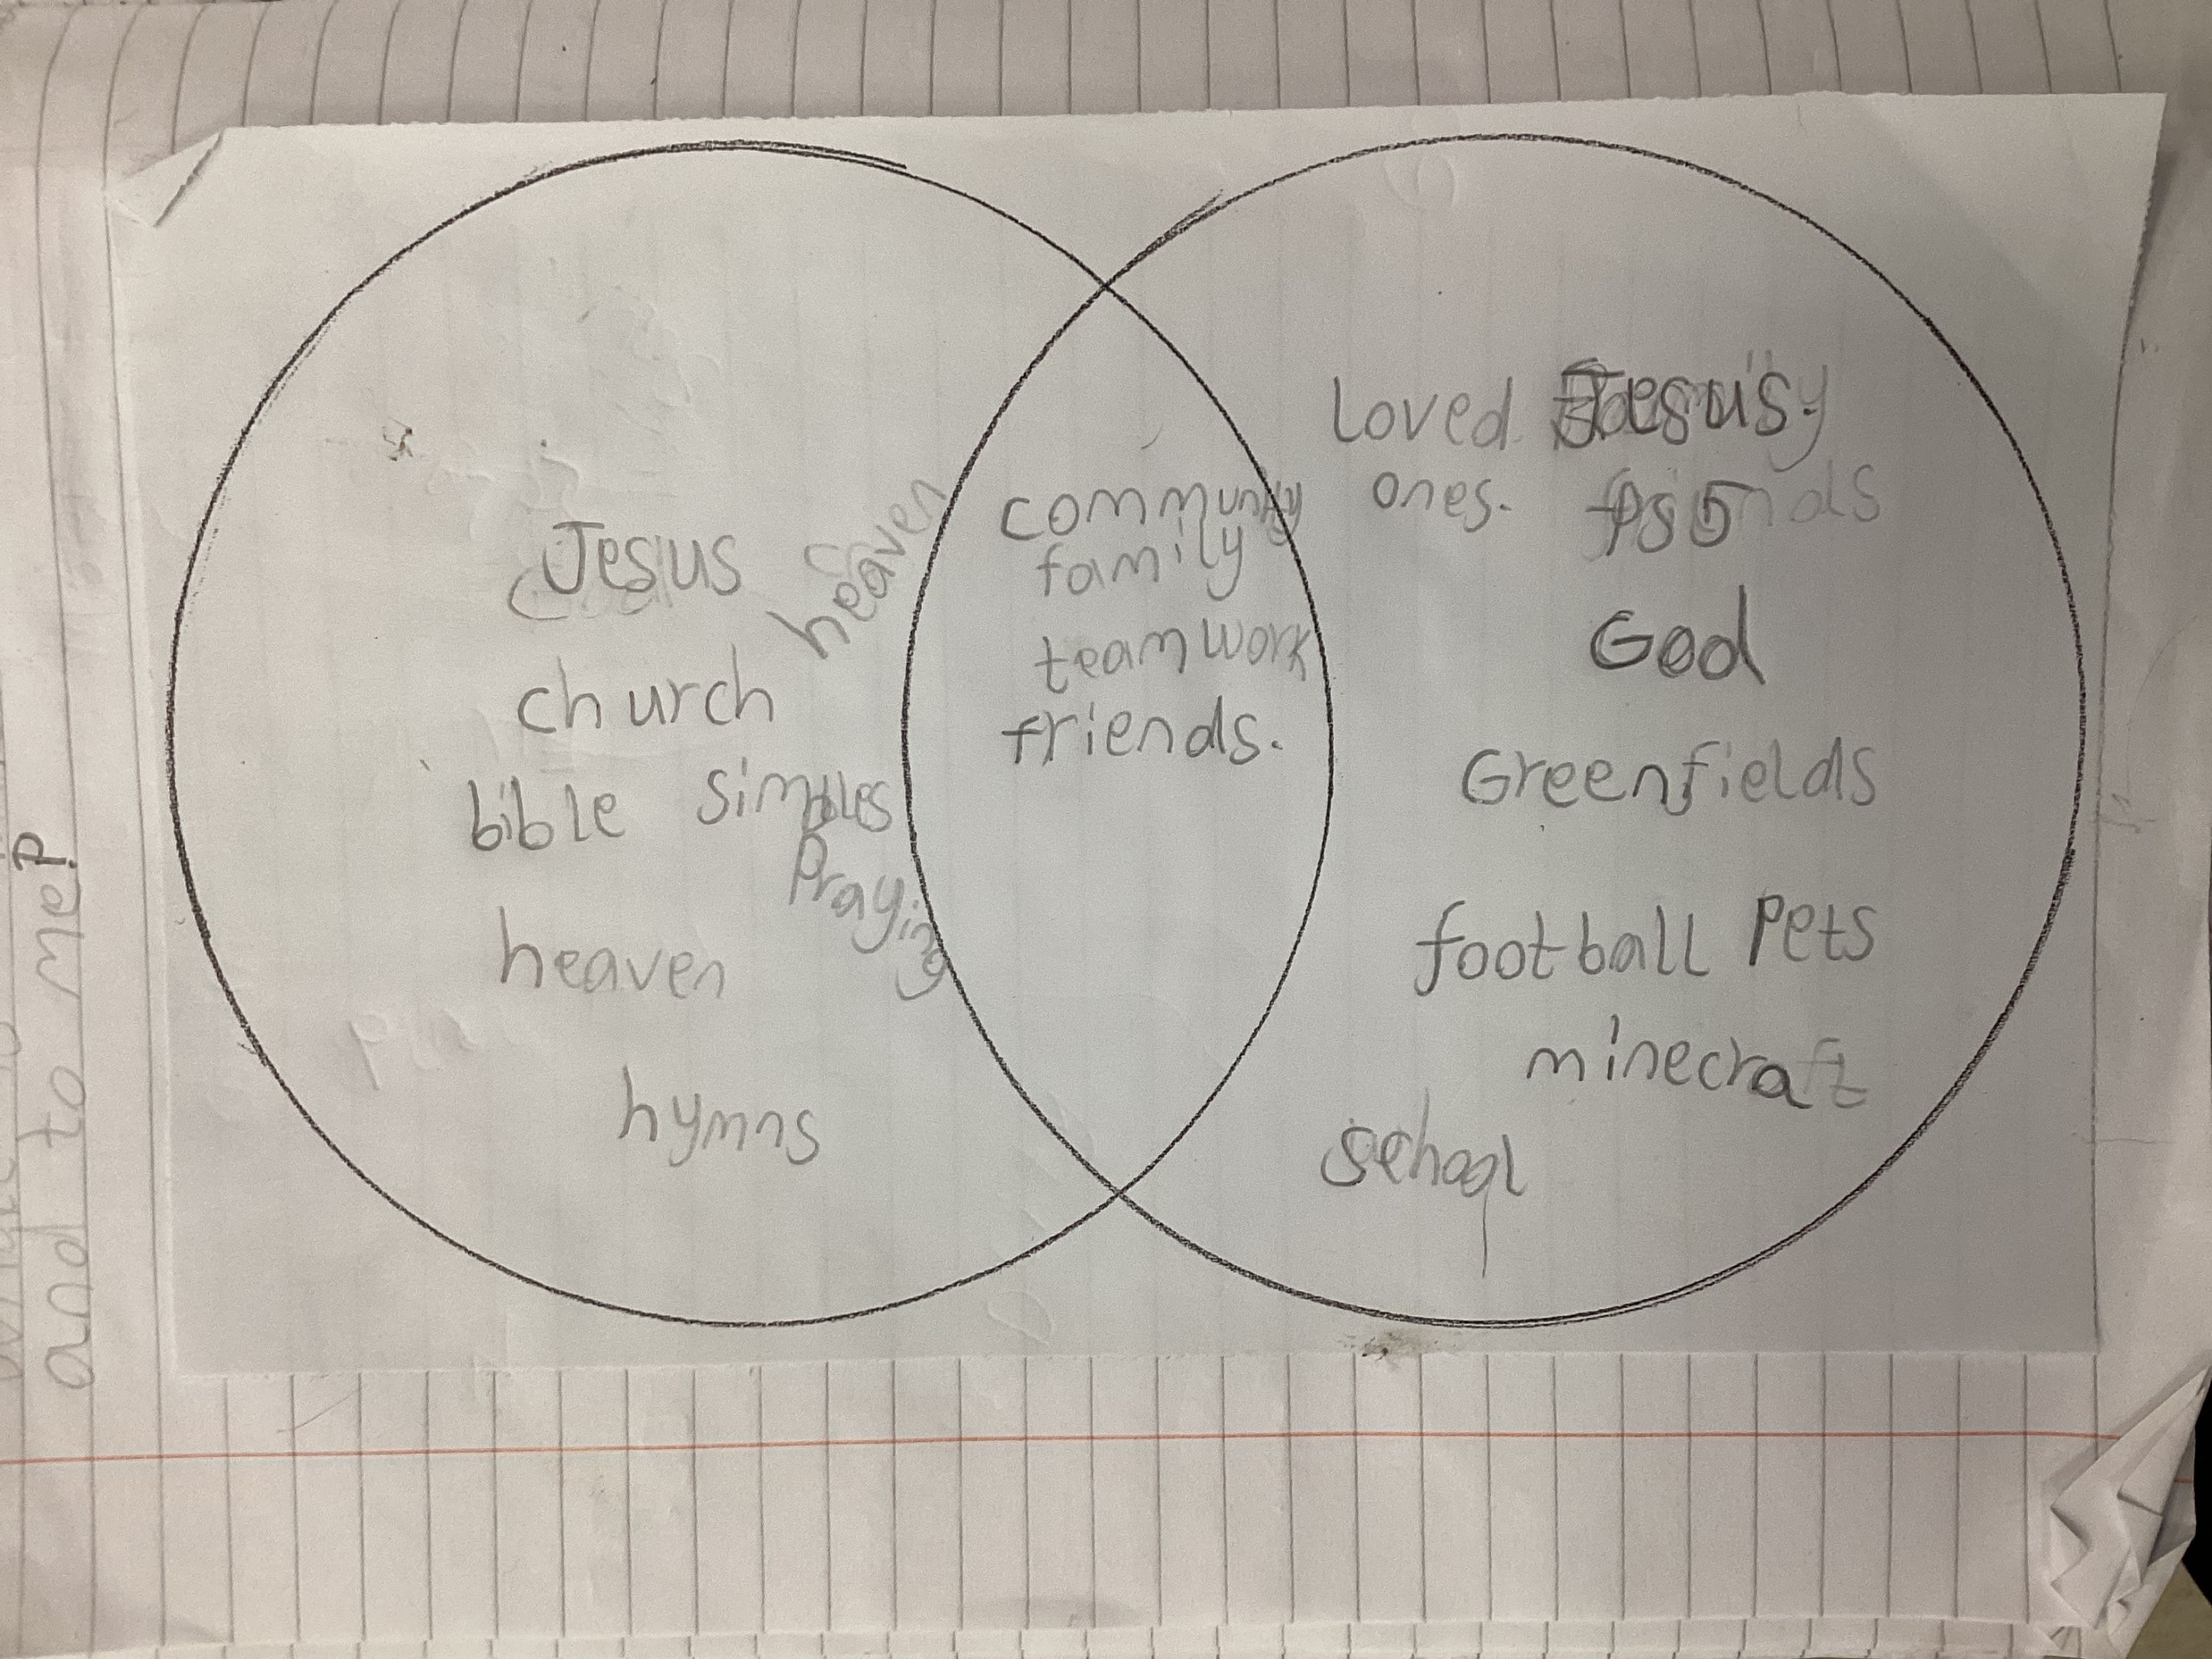 Jesus
heaven
church
bible simbles
Praying
heaven
hymns
community
family
teamwork
friends.
Loved Jesus.
ones. PS5
God
Greenfields
football Pets
minecraft
school
and to me?